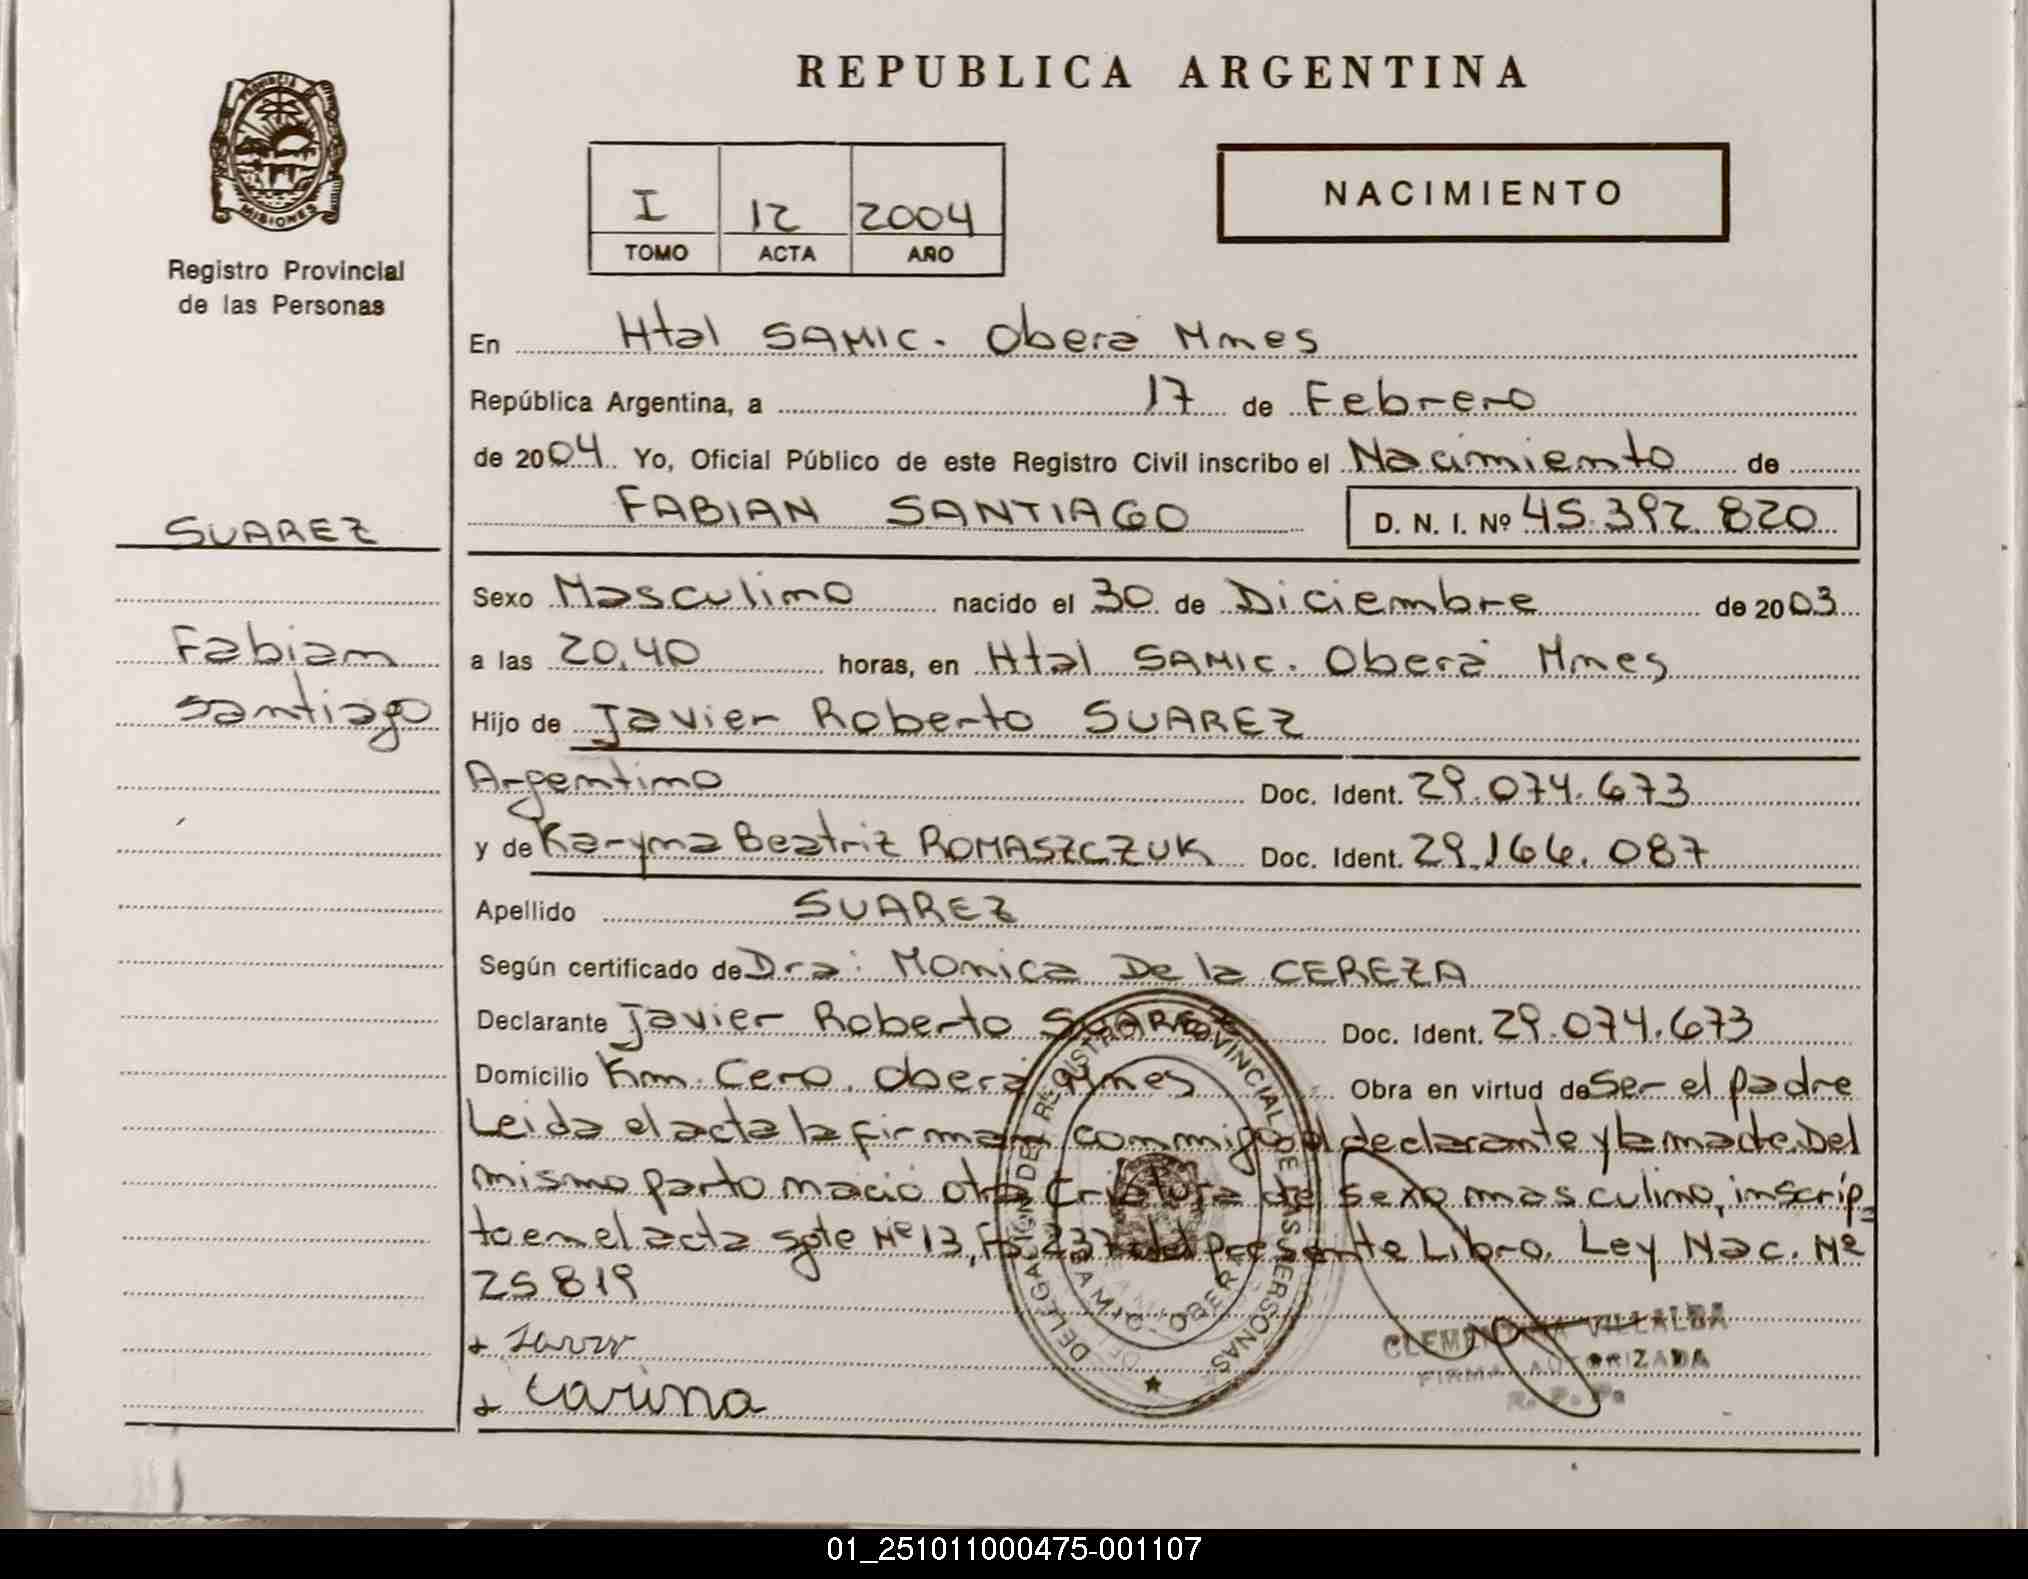 REPUBLICA ARGENTINA
PROVINCIA DE
MISIONES
Registro Provincial
de las Personas
I 12 2004
TOMO ACTA AÑO
NACIMIENTO
En Htal SAMIC. Oberá Mnes
República Argentina, a 17 de Febrero
de 2004 Yo, Oficial Público de este Registro Civil inscribo el Nacimiento de
FABIAN SANTIAGO D. N. I. Nº 45.392.820
SUAREZ
Fabian
Santiago
Sexo Masculino nacido el 30 de Diciembre de 2003
a las 20,40 horas, en Htal SAMIC. Oberá Mnes
Hijo de Javier Roberto SUAREZ
Argentino Doc. Ident. 29.074.673
y de Karyna Beatriz ROMASZCZUK Doc. Ident. 29.166.087
Apellido SUAREZ
Según certificado de Dra: Monica De la CEREZA
Declarante Javier Roberto SUAREZ Doc. Ident. 29.074.673
Domicilio Km. Cero. Oberá Mnes Obra en virtud de Ser el padre
Leida el acta la firman conmigo el declarante y la madre. Del
mismo parto nació otra criatura de sexo masculino, inscrip-
to en el acta sgte Nº 13, Fo. 237 del presente Libro. Ley Nac. Nº
25819
DELEGACION DEL REGISTRO PROVINCIAL DE LAS PERSONAS
SAMIC - OBERA
+ Javier
+ Carina
CLEMENTINA VILLALBA
FIRMA AUTORIZADA
R. P. P.
01_251011000475-001107